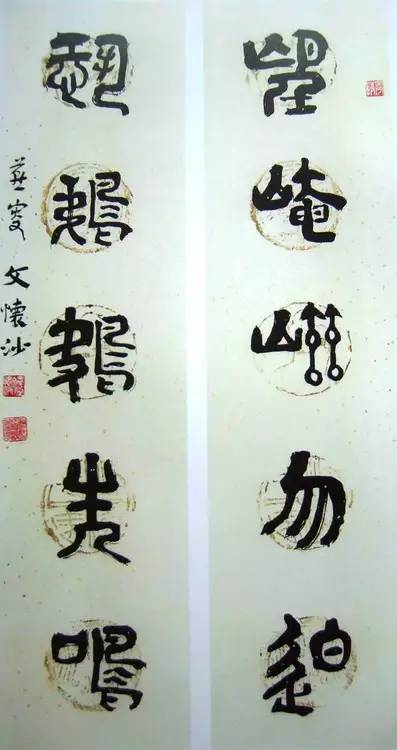 望崦嵫勿迫
恐鵜鴂先鳴
燕叟 文懷沙